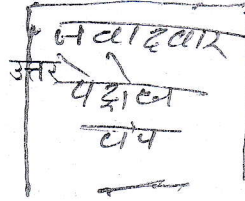 जवादवार
उत्तरे
पेट्रोल
पंप